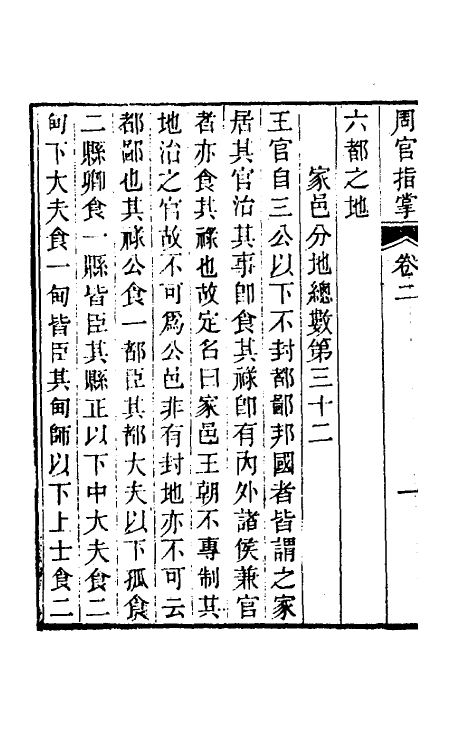 周官指掌 卷二 一
六都之地
家邑分地總數第三十二
王官自三公以下不封都鄙邦國者皆謂之家
居其官治其事卽食其祿卽有內外諸侯兼官
者亦食其祿也故定名曰家邑王朝不專制其
地治之官故不可爲公邑非有封地亦不可云
都鄙也其祿公食一都臣其都大夫以下孤食
二縣卿食一縣皆臣其縣正以下中大夫食二
甸下大夫食一甸皆臣其甸師以下上士食二